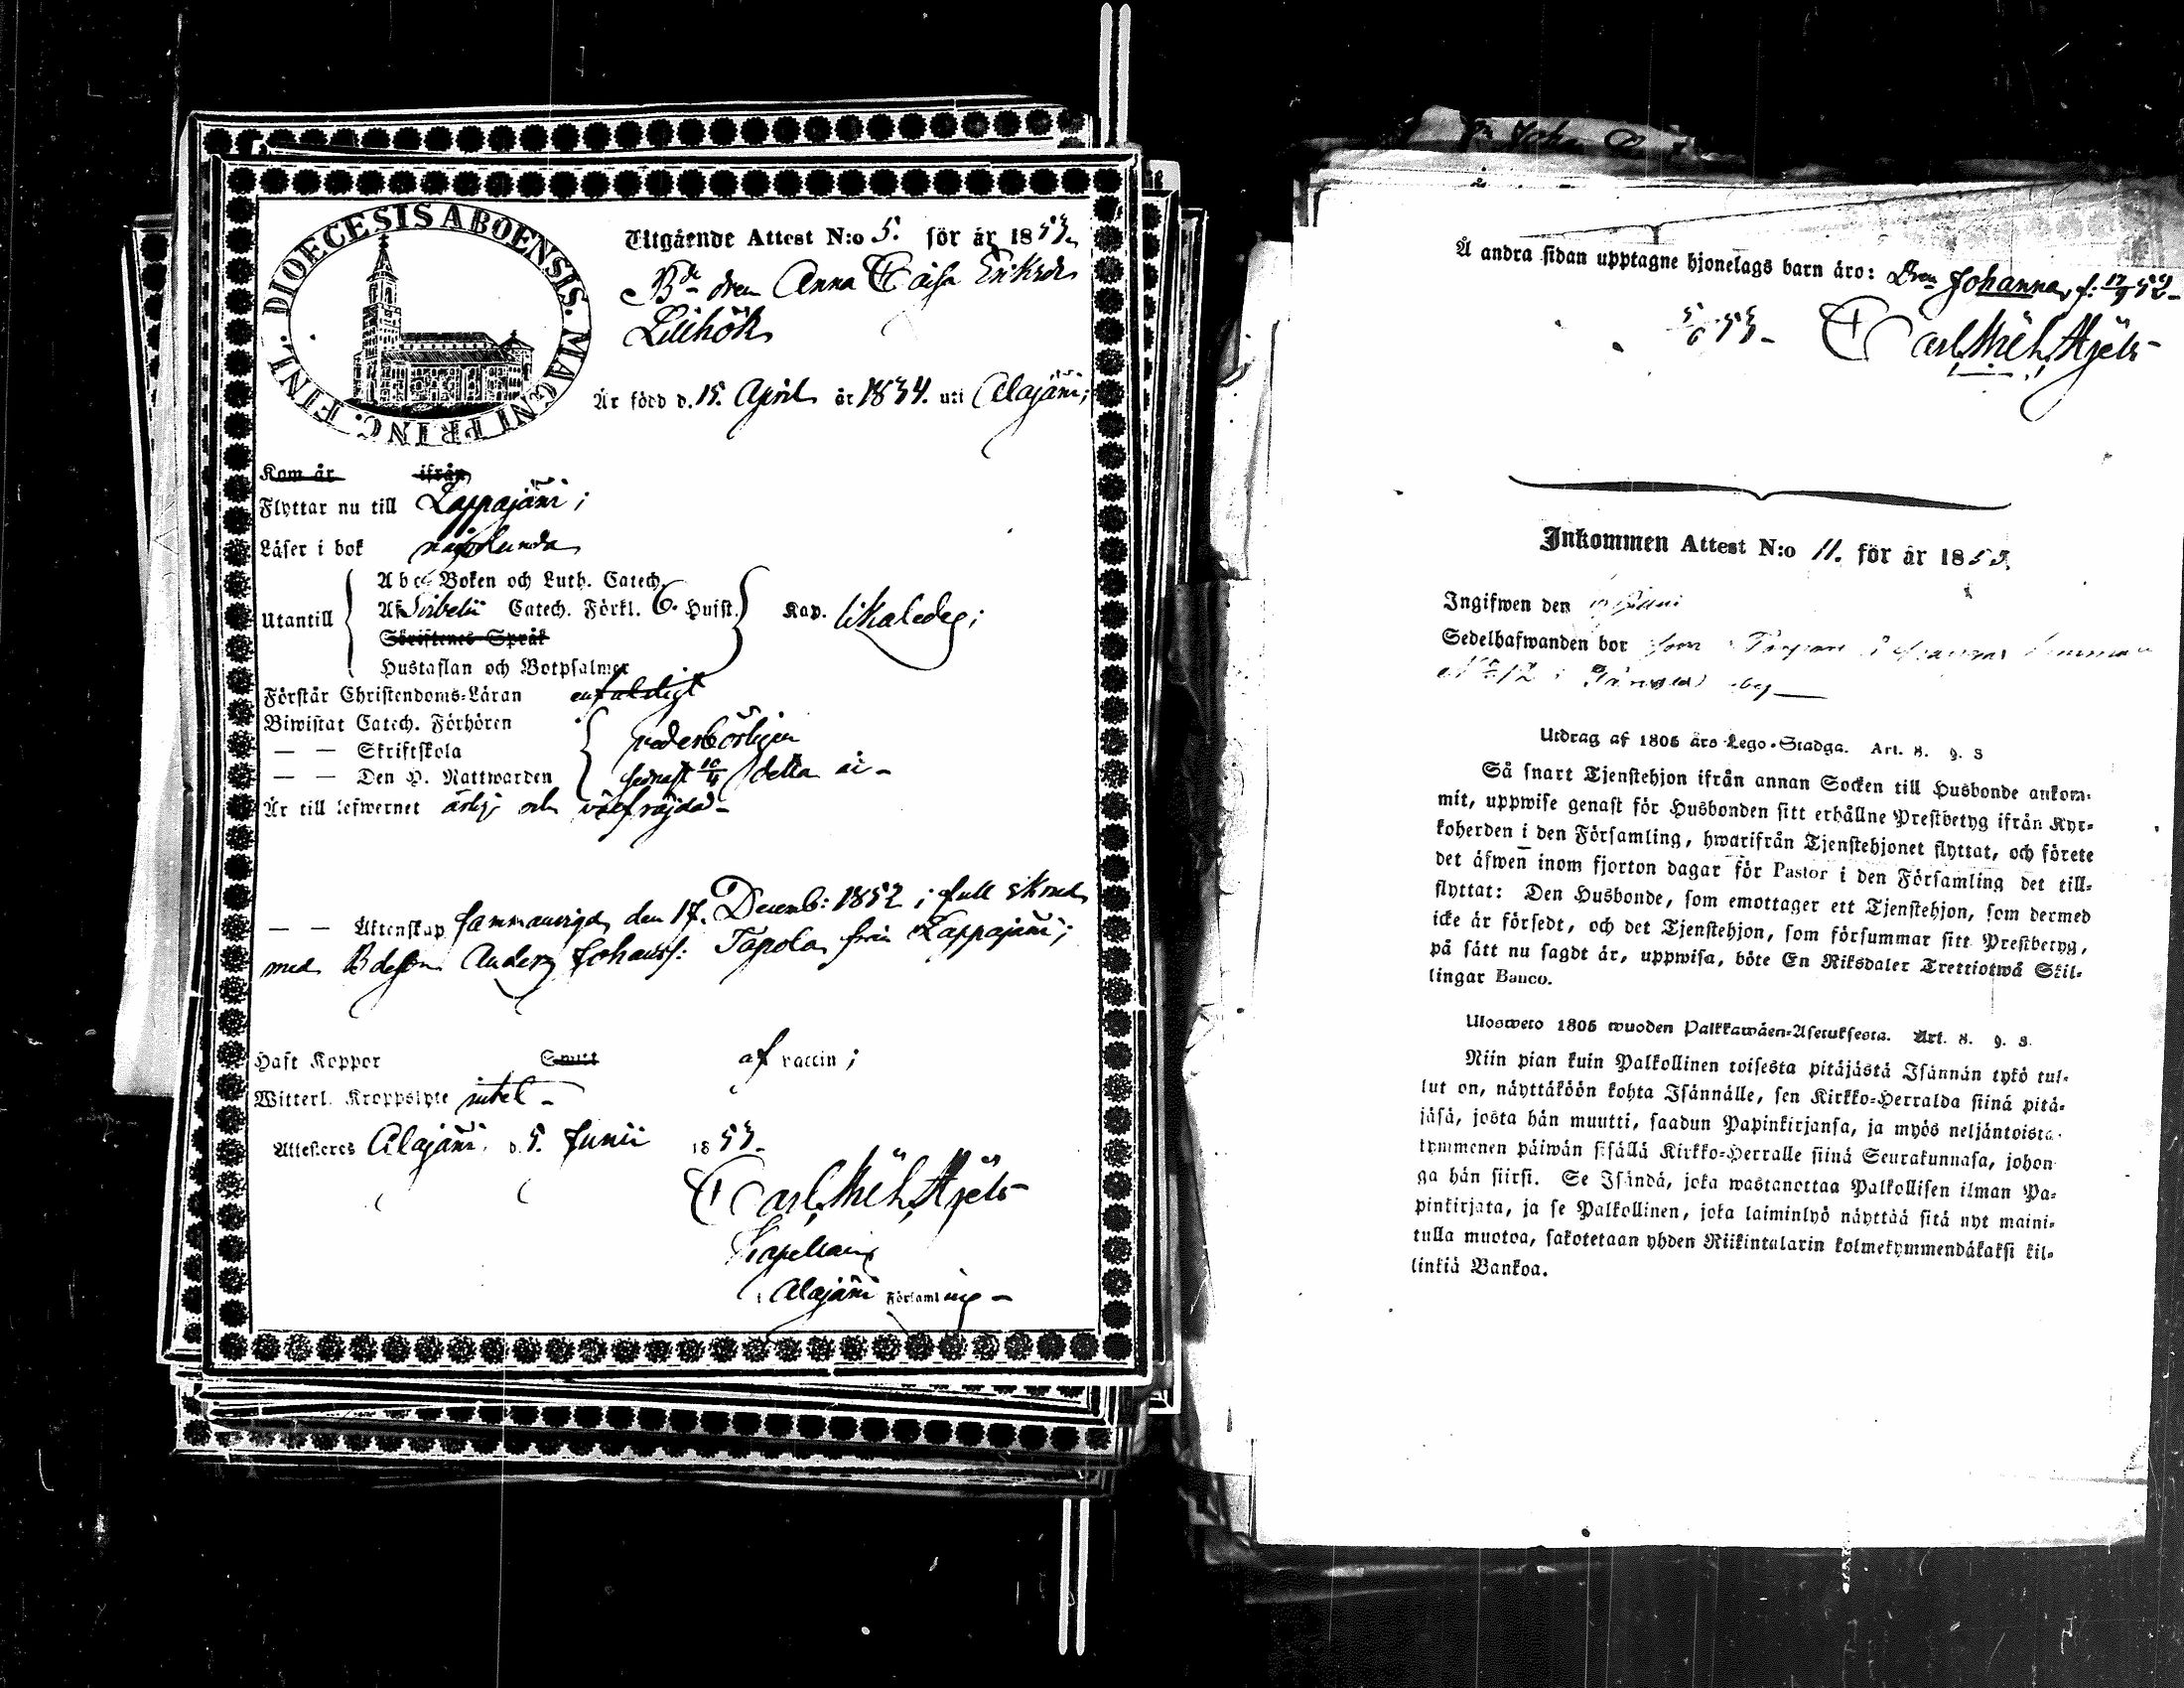 DIOECESIS ABOENSIS. MAGNI PRINC. FINL.
Utgående Attest N:o 5. för år 1853.
Bde dren Anna Caisa Eriksdr
Lillhök
Är född d. 15. April år 1834. uti Alajärvi;
Kom år ifrån
Flyttar nu till Lappajärvi;
Läser i bok någorlunda
Utantill
Abc-Boken och Luth. Catech.
Af Svebelii Catech. Förkl. 6. Hufst. Kap. likaledes;
Skriftenes Språk
Hustaflan och Botpsalmer
Förstår Christendoms-Läran enfaldigt
Biwistat Catech. Förhören
— — Skriftskola vederbörligen
— — Den H. Nattwarden sednast 10/4 detta år –
Är till lefwernet ärlig och välfrejdad –
— — Äktenskap sammanvigd den 17. Decemb: 1852 i full skrud
med Bdeson Anders Johanss: Tapola från Lappajärvi;
Haft Koppor Swart af vaccin;
Witterl. Kroppslyte intet –
Attesteras Alajärvi. d. 5. Junii 1853.
Carl Mich. Hjelt
Kapellan
i Alajärvi Församling –
Å andra sidan upptagne hjonelags barn äro: Dren Johanna, f: 17/9 52 –
5/6 53 – Carl Mich. Hjelt –
Inkommen Attest N:o 11. för år 1853.
Ingifwen den Junii
Sedelhafwanden bor
N 12 i by —
Utdrag af 1805 års Lego-Stadga. Art. 8. §. 3
Så snart Tjenstehjon ifrån annan Socken till Husbonde ankom-
mit, uppwise genast för Husbonden sitt erhållne Prestbetyg ifrån Kyr-
koherden i den Församling, hwarifrån Tjenstehjonet flyttat, och förete
det äfwen inom fjorton dagar för Pastor i den Församling det till-
flyttat: Den Husbonde, som emottager ett Tjenstehjon, som dermed
icke är försedt, och det Tjenstehjon, som försummar sitt Prestbetyg,
på sätt nu sagdt är, uppwisa, böte En Riksdaler Trettiotwå Skil-
lingar Banco.
Ulosweto 1805 wuoden Palkkawäen-Asetuksesta. Art. 8. §. 3.
Niin pian kuin Palkollinen toisesta pitäjästä Isännän tykö tul-
lut on, näyttäköön kohta Isännälle, sen Kirkko-Herralda siinä pitä-
jäsä, josta hän muutti, saadun Papinkirjansa, ja myös neljäntoista-
kymmenen päiwän sisällä Kirkko-Herralle siinä Seurakunnasa, johon-
ga hän siirsi. Se Isändä, joka wastanottaa Palkollisen ilman Pa-
pinkirjata, ja se Palkollinen, joka laiminlyö näyttää sitä nyt maini-
tulla muotoa, sakotetaan yhden Riikintalarin kolmekymmendäkaksi kil-
linkiä Bankoa.